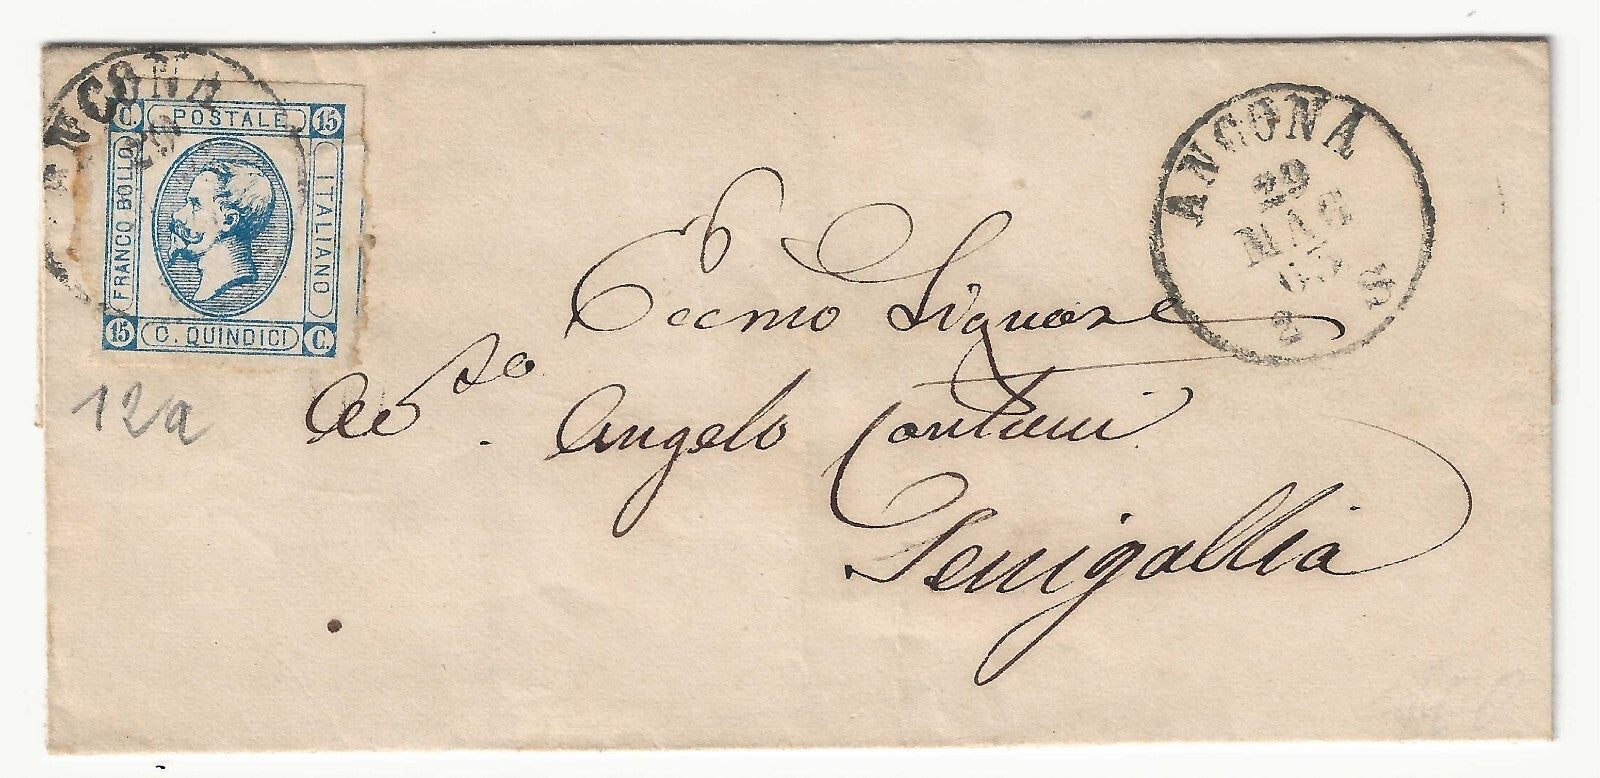 ANCONA
29
C. POSTALE 15
FRANCO BOLLO
ITALIANO
15 C. QUINDICI C.
12a
ANCONA
29
MAG
63
2 S
Eccmo Signore
Angelo Contani
Senigallia